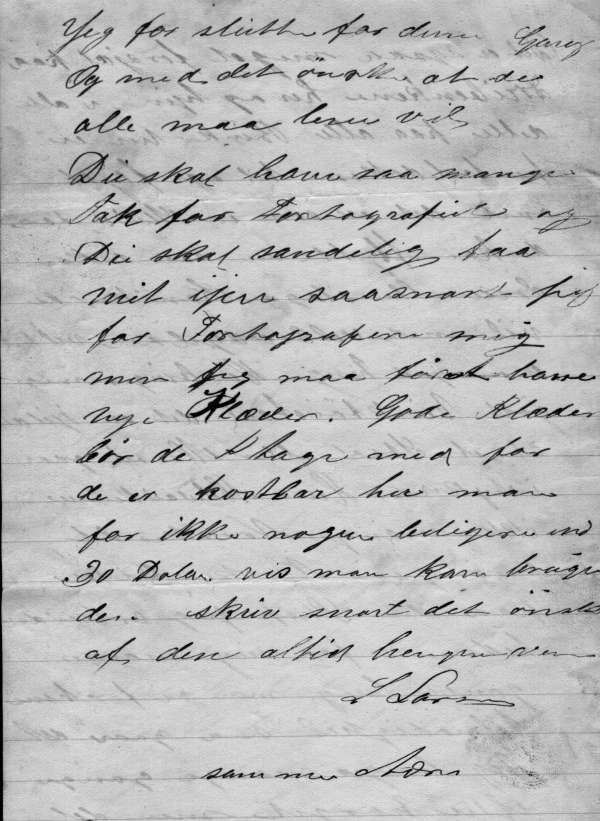 Jeg for slutte for denne Gang
Og med det önske at de
alle maa leve vel
Die skal have saa mange
Tak for Fortografiet og
Die skal sandelig faa
mit ijen saasnart jeg
for Fortografere mig
men jeg maa först have
nye Klæder. Gode Klæder
bör de I tage med for
de er kostbar her man
for ikke nogen beligere end
30 Dolar vis man kan bruge
den. skriv snart det önsk
af den altid hengivne ven
L Larsen
samme Adrs